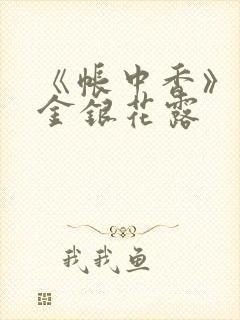 《帐中香》
金银花露
我我鱼